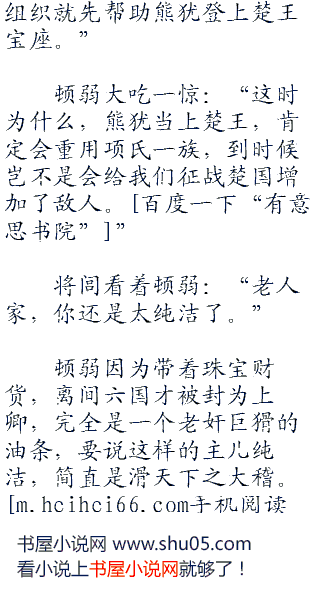 组织就先帮助熊犹登上楚王
宝座。”
顿弱大吃一惊：“这时
为什么，熊犹当上楚王，肯
定会重用项氏一族，到时候
岂不是会给我们征战楚国增
加了敌人。[百度一下“有意
思书院”]”
将闾看着顿弱：“老人
家，你还是太纯洁了。”
顿弱因为带着珠宝财
货，离间六国才被封为上
卿，完全是一个老奸巨猾的
油条，要说这样的主儿纯
洁，简直是滑天下之大稽。
[m.hcihci66.com手机阅读
书屋小说网 www.shu05.com
看小说上书屋小说网就够了！